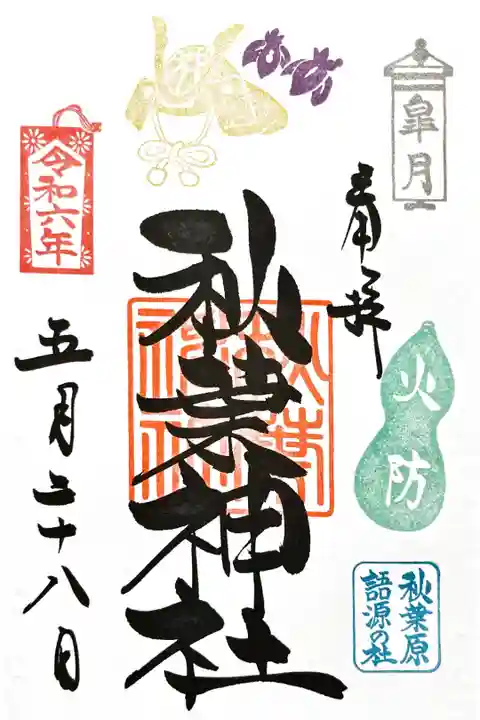 皐月
奉拝
火防
秋葉原
語源の社
秋葉神社
令和六年
五月二十八日